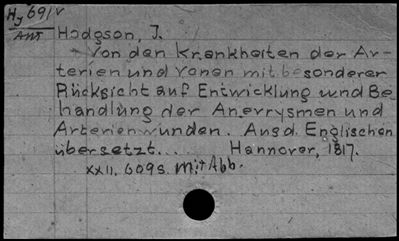 Hy 691v
Ant
Hodgson, J.
Von den Krankheiten der Ar-
terien und Venen mit besonderer
Rücksicht auf Entwicklung und Be
handlung der Anevrysmen und
Arterienwunden. Aus d. Englischen
übersetzt... Hannover, 1817.
XXII. 609 S. Mit Abb.